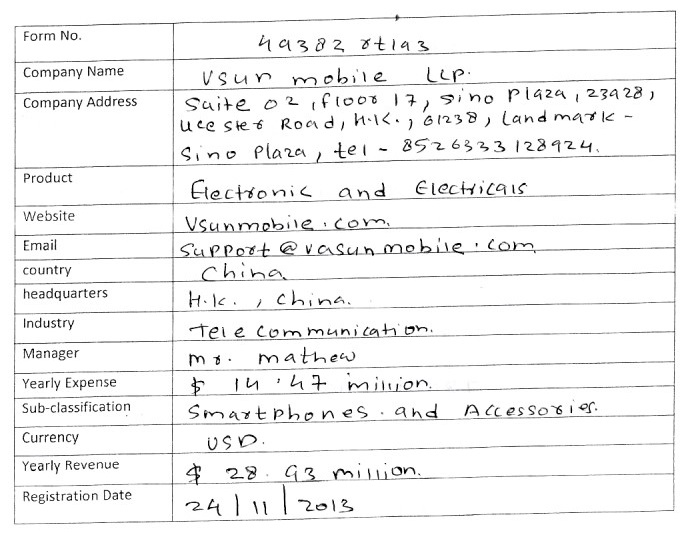 Form No. 49382 rt193
Company Name Vsun mobile LLP.
Company Address Suite 02, floor 17, sino Plaza, 23928,
Road, H.K., 61238, Landmark -
Sino Plaza, tel - 8526333128924.
Product Electronic and Electricals
Website Vsunmobile.com.
Email Support@vasunmobile.com
country China
headquarters H.K., China.
Industry Telecommunication.
Manager Mr. mathew
Yearly Expense $ 14.47 million.
Sub-classification Smartphones. and Accessories.
Currency USD.
Yearly Revenue $ 28.93 million.
Registration Date 24/11/2013